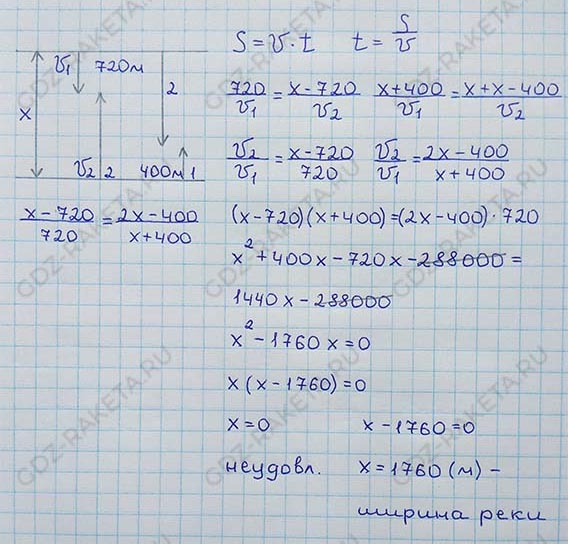 S = v · t    t = S/v
v₁ 720м
2
x
v₂ 2 400м 1
720/v₁ = (x-720)/v₂    (x+400)/v₁ = (x+x-400)/v₂
v₂/v₁ = (x-720)/720    v₂/v₁ = (2x-400)/(x+400)
(x-720)/720 = (2x-400)/(x+400)
(x-720)(x+400)=(2x-400)·720
x²+400x-720x-288000=
1440x-288000
x²-1760x=0
x(x-1760)=0
x=0    x-1760=0
неудовл.    x=1760(м) -
ширина реки
GDZ-RAKETA.RU